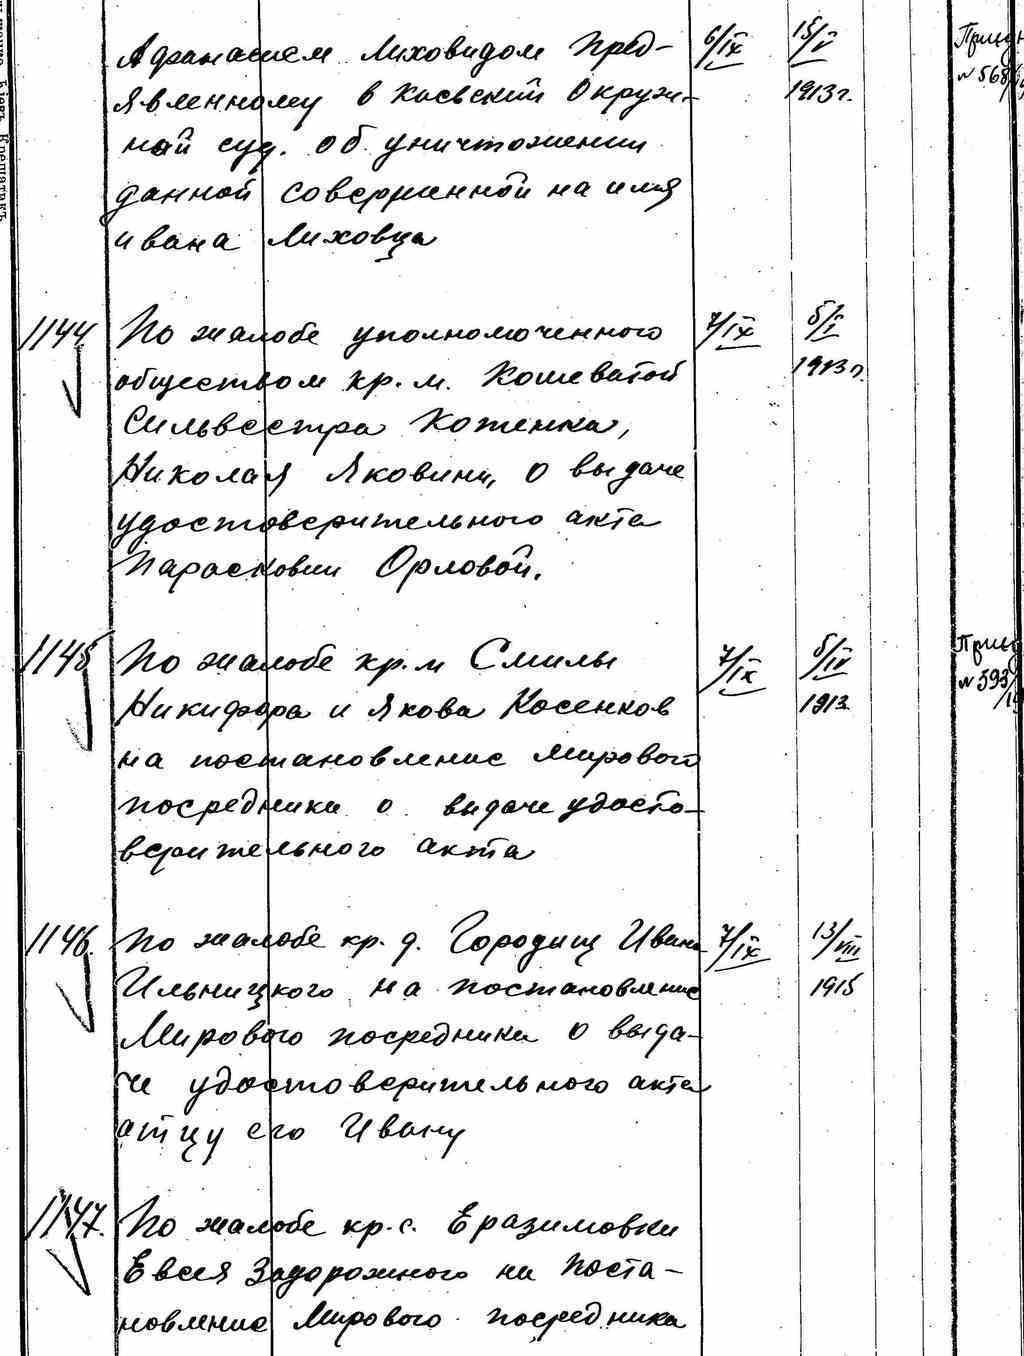 Афанасием Лиховидом пред- 6/IX 15/V
явленному в Киевский Окруж- 1913 г.
ный суд. об уничтожении
данной совершенной на имя
Ивана Лиховца
1144. По жалобе уполномоченного 7/IX 5/I
обществом кр. м. Кошеватой 1913 г.
Сильвестра Котенка,
Николая Яковини, о выдаче
удостоверительного акта
Парасковии Орловой.
1145 По жалобе кр. м Смилы 7/IX 5/IV
Никифора и Якова Косенков 1913
на постановление Мировой
посредники о выдаче удосто-
верительного акта
1146. По жалобе кр. д. Городищ Ивана 7/IX 13/VIII
Ильницкого на постановление 1915
Мирового посредника о выда-
че удостоверительного акта
атцу его Ивану
1147. По жалобе кр. с. Еразимовки
Евсея Задорожного на поста-
новление Мирового посредника
№ 568
№ 593
Кіевъ Крещатикъ